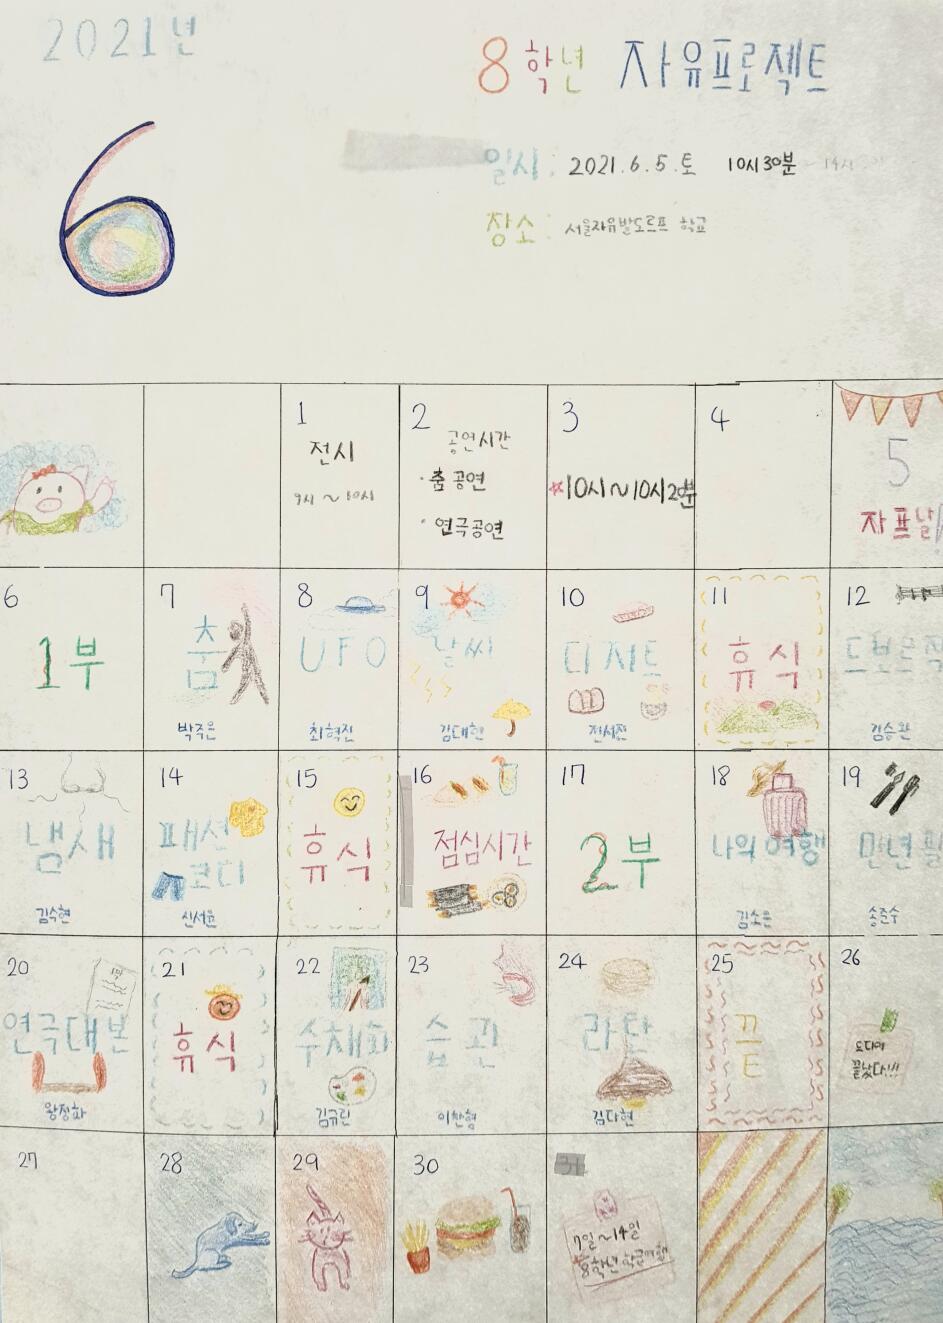 2021년
6
8학년 자유프로젝트
일시: 2021.6.5.토 10시30분 ~ 14시
장소: 서울자유발도르프 학교
1
전시
9시~10시
2
공연시간
·춤 공연
·연극공연
3
*10시~10시2분
4
5
자프날
6
1부
7
춤
박주은
8
UFO
최혁진
9
날씨
김대현
10
디저트
11
휴식
12
드보르작
김승완
13
냄새
김수현
14
패션
코디
신서윤
15
휴식
16
점심시간
17
2부
18
나의 여행
김소은
19
만년필
송준수
20
연극대본
왕정화
21
휴식
22
수채화
김규린
23
습관
이찬형
24
라탄
김다현
25
끄트
26
드디어
끝났다!!!
27
28
29
30
31
7일~14일
8학년 학급여행